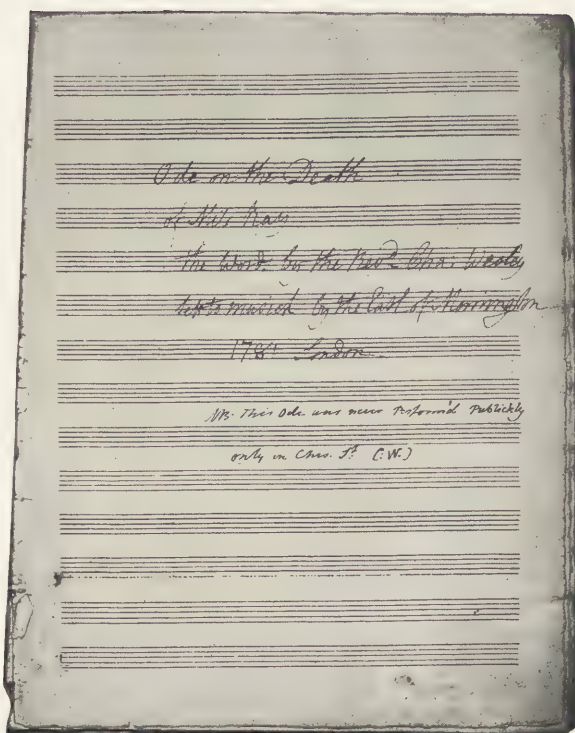 Ode on the Death
of Mrs
The Words by the Revd Cha: Wesley
set to musick by the Earl of Mornington
London
NB: This Ode was never Perform'd Publickly
only in Ches. St. C.W.)